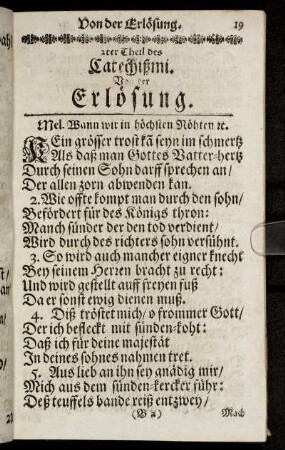 Von der Erlösung. 19
2ter Theil des
Catechißmi.
Von der
Erlösung.
Mel. Wann wir in höchsten Nöhten ꝛc.
KEin grösser trost kã seyn im schmertz
Als daß man Gottes Vatter-hertz
Durch seinen Sohn darff sprechen an/
Der allen zorn abwenden kan.
2. Wie offte kompt man durch den sohn/
Befördert für des Königs thron:
Manch sünder der den tod verdient/
Wird durch des richters sohn versühnt.
3. So wird auch mancher eigner knecht
Bey seinem Herzen bracht zu recht:
Und wird gestellt auff freyen fuß
Da er sonst ewig dienen muß.
4. Diß tröstet mich/ o frommer Gott/
Der ich befleckt mit sünden-koht:
Daß ich für deine majestät
In deines sohnes nahmen tret.
5. Aus lieb an ihn sey gnädig mir/
Mich aus dem sünden-kercker führ:
Deß teuffels bande reiß entzwey/
Mach